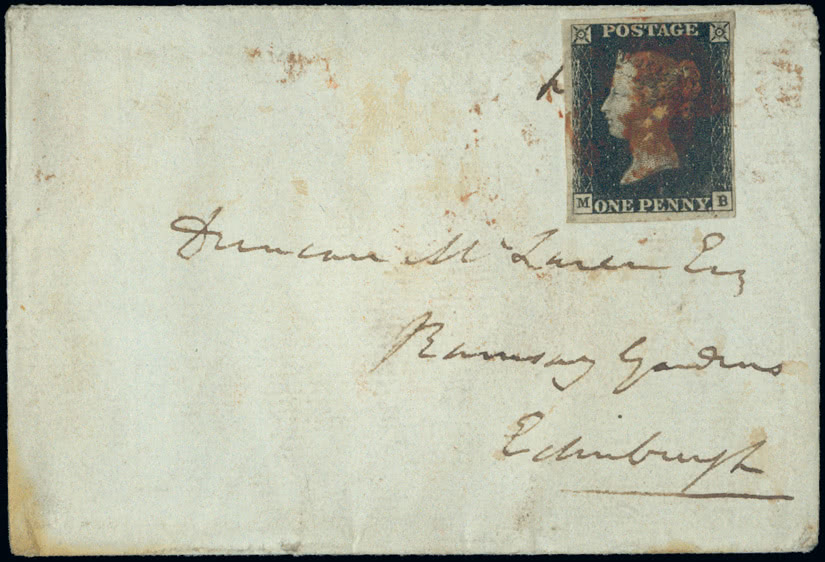 POSTAGE
M ONE PENNY B
Duncan McLaren Esq
Ramsay Gardens
Edinburgh